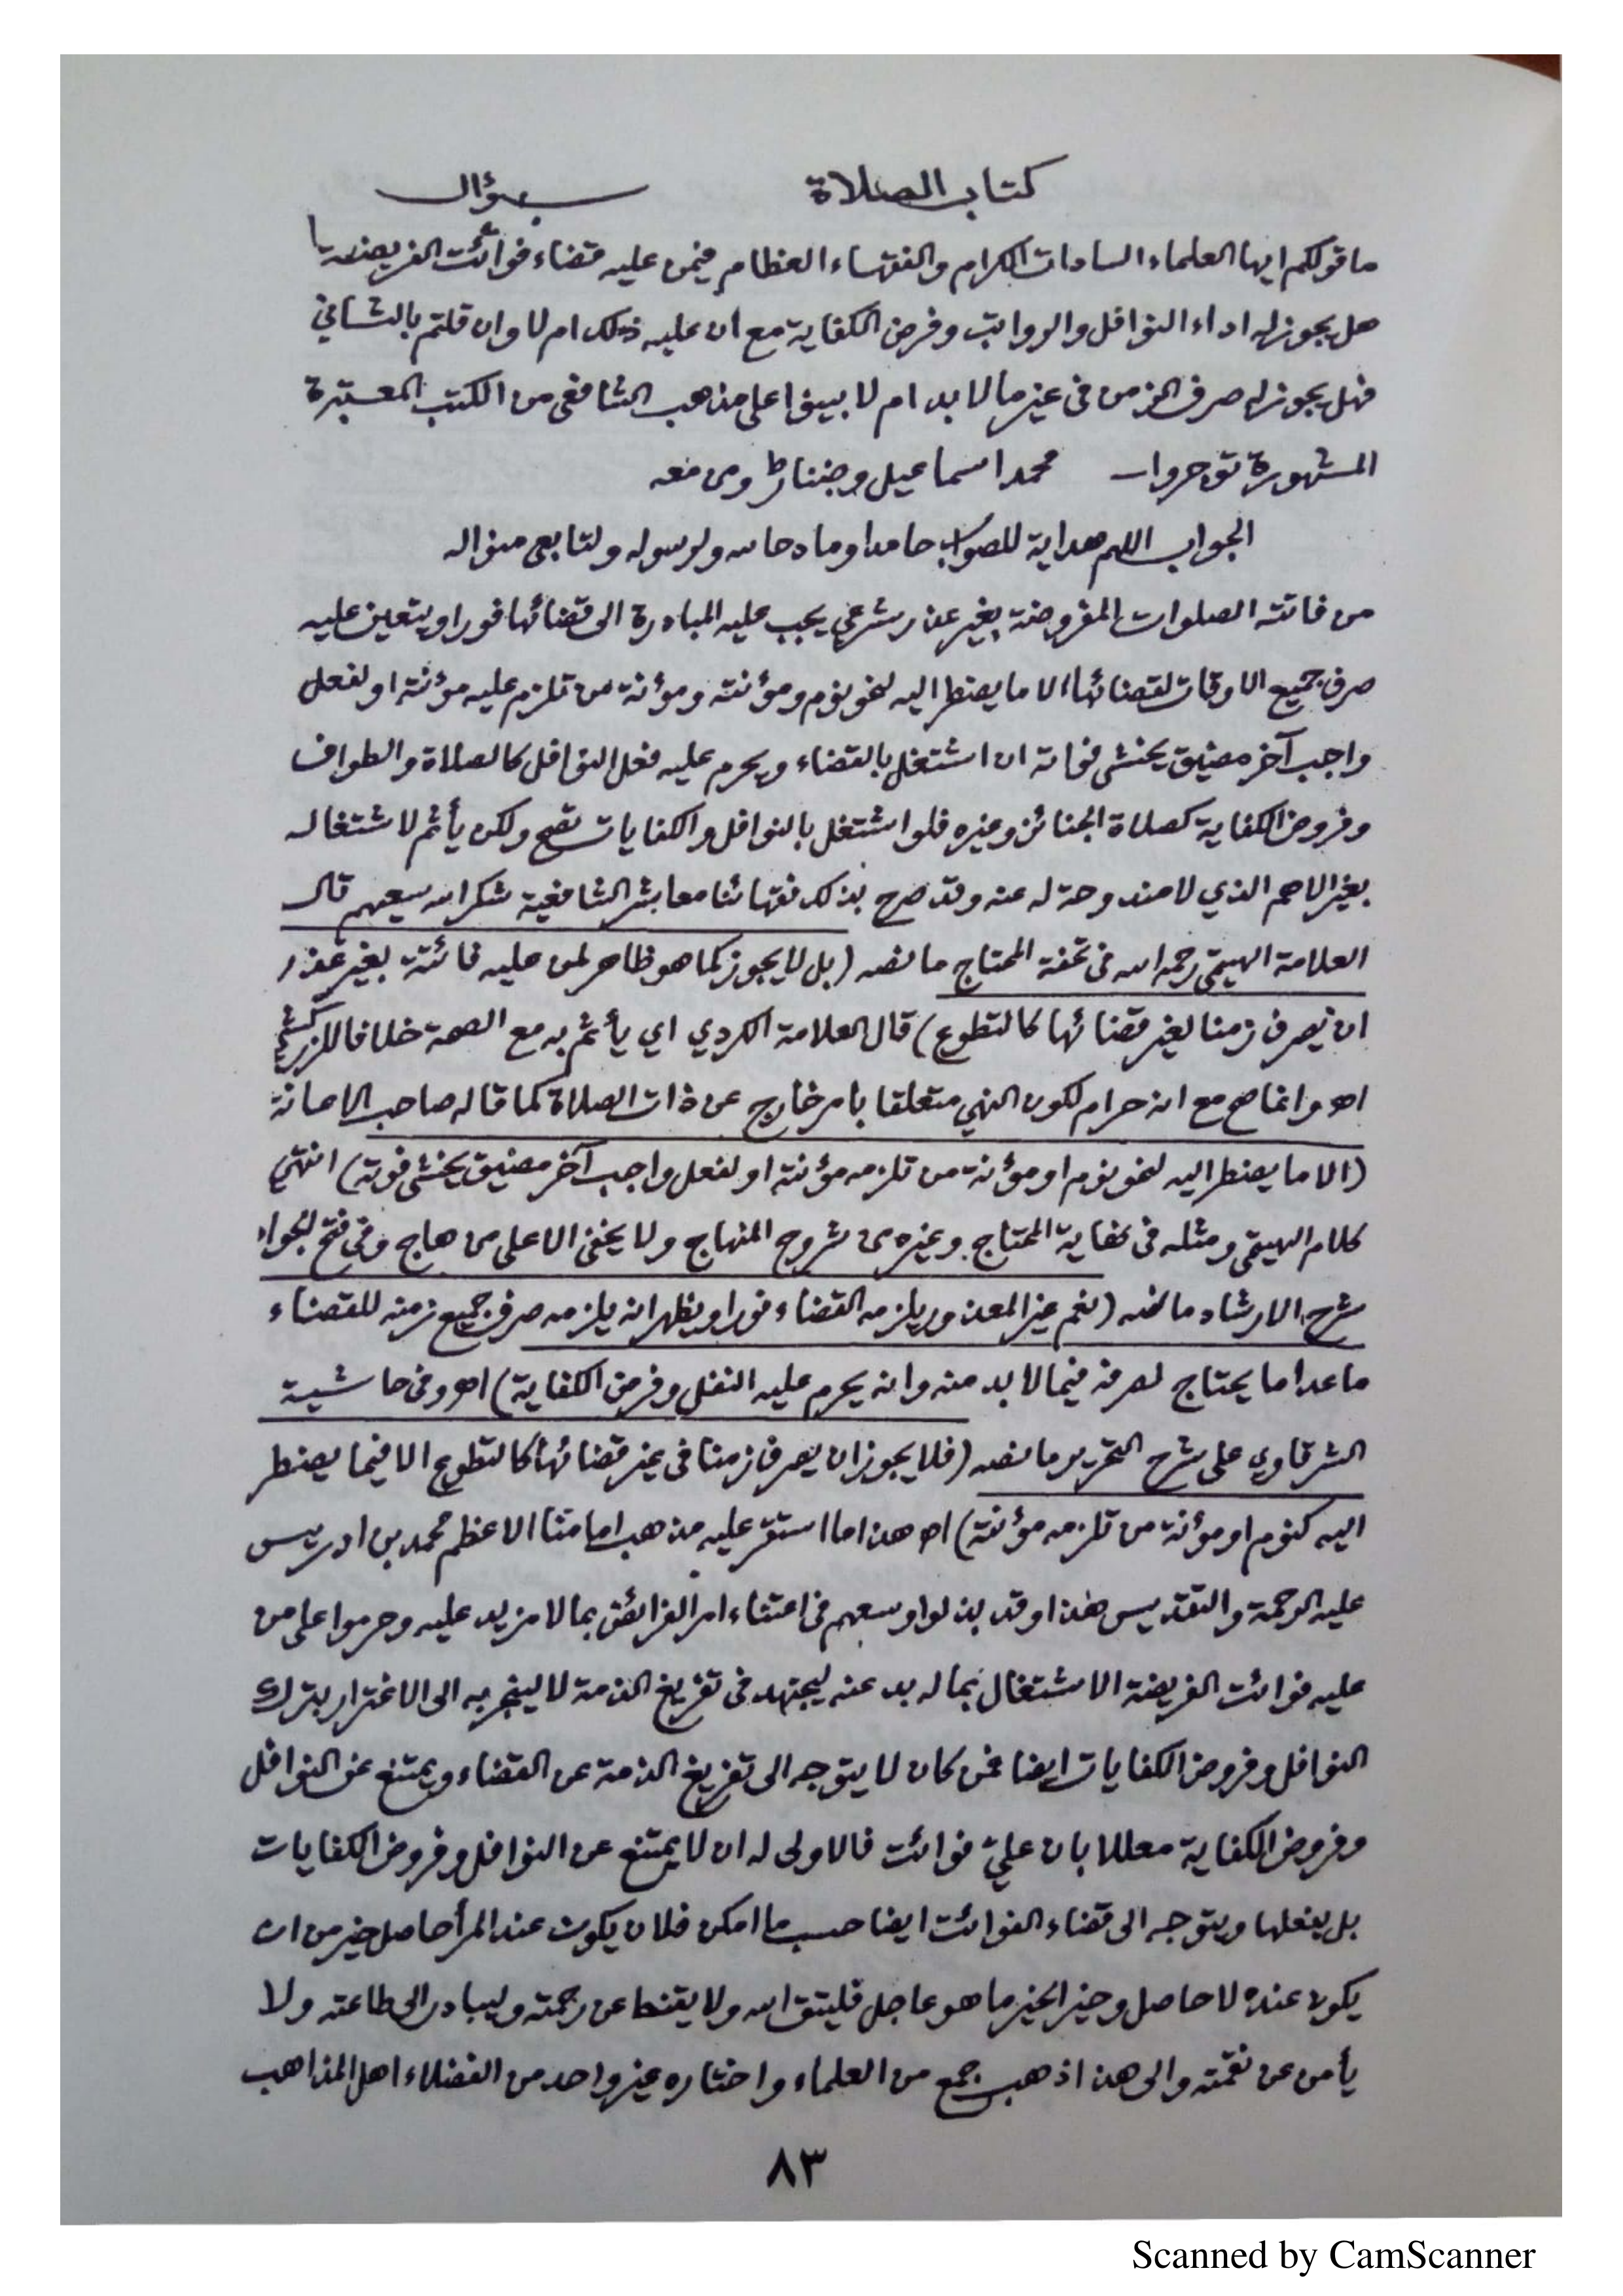 كتاب الصلاة سؤال
ما قولكم ايها العلماء السادات الكرام والفقهاء العظام فيمن عليه قضاء فوائت الفريضة
هل يجوز له اداء النوافل والرواتب وفرض الكفاية مع ان عليه ذلك ام لا وان قلتم بالثاني
فهل يجوز له صرف الزمن في غير ما لا بد ام لا بينوا على مذهب الشافعي من الكتب المعتبرة
المشهورة توجروا محمد اسماعيل ومن معه
الجواب اللهم هداية للصواب حامدا وما دحا له ولرسوله ولتابعي منواله
من فاتته الصلوات المفروضة بغير عذر شرعي يجب عليه المبادرة الى قضائها فورا ويتعين عليه
صرف جميع الاوقات لقضائها الا ما يضطر اليه لنحو نوم ومؤنته ومؤنة من تلزم عليه مؤنته او لفعل
واجب آخر مضيق يخشى فواته ان اشتغل بالقضاء ويحرم عليه فعل النوافل كالصلاة والطواف
وفروض الكفاية كصلاة الجنائز وغيره فلو اشتغل بالنوافل والكفايات تصح ولكن يأثم لاشتغاله
بغير الاهم الذي لا مندوحة له عنه وقد صرح بذلك فقهائنا معاشر الشافعية شكر الله سعيهم قال
العلامة الهيتمي رحمه الله في تحفة المحتاج ما نصه (بل لا يجوز كما هو ظاهر لمن عليه فائتة بغير عذر
ان يصرف زمنا لغير قضائها كالتطوع) قال العلامة الكردي اي يأثم به مع الصحة خلافا للزركشي
اهـ وانما صح مع انه حرام لكون النهي متعلقا بامر خارج عن ذات الصلاة كما قاله صاحب الاعانة
(الا ما يضطر اليه لنحو نوم او مؤنة من تلزمه مؤنته او لفعل واجب آخر مضيق يخشى فوته) انتهى
كلام الهيتمي ومثله في كفاية المحتاج وغيره من شروح المنهاج ولا يخفى الا على من هاج وفي فتح الجواد
شرح الارشاد ما نصه (نعم غير المعذور يلزمه القضاء فورا ويظهر انه يلزمه صرف جميع زمنه للقضاء
ما عدا ما يحتاج لصرفه فيما لا بد منه وانه يحرم عليه النفل وفرض الكفاية) اهـ وفي حاشية
الشرقاوي على شرح التحرير ما نصه (فلا يجوز ان يصرف زمنا في غير قضائها كالتطوع الا فيما يضطر
اليه كنوم او مؤنة من تلزمه مؤنته) اهـ هذا ما استقر عليه مذهب امامنا الاعظم محمد بن ادريس
عليه الرحمة والتقديس هذا وقد بذلوا وسعهم في اعتناء امر الفرائض بما لا مزيد عليه وحرموا على من
عليه فوائت الفريضة الاشتغال بما له بد عنه ليجتهد في تفريغ الذمة لا لينجر به الى الاغترار بترك
النوافل وفروض الكفايات ايضا فمن كان لا يتوجه الى تفريغ الذمة عن القضاء ويمتنع عن النوافل
وفروض الكفاية معللا بان علي فوائت فالاولى له ان لا يمتنع عن النوافل وفروض الكفايات
بل يفعلها ويتوجه الى قضاء الفوائت ايضا حسب ما امكن فلان يكون عند المرأ حاصل خير من ان
يكون عنده لا حاصل وخير الخير ما هو عاجل فليتق الله ولا يقنط عن رحمته وليبادر الى طاعته ولا
يأمن عن نقمته والى هذا ذهب جمع من العلماء واختاره غير واحد من الفضلاء اهل المذاهب
٨٣
Scanned by CamScanner